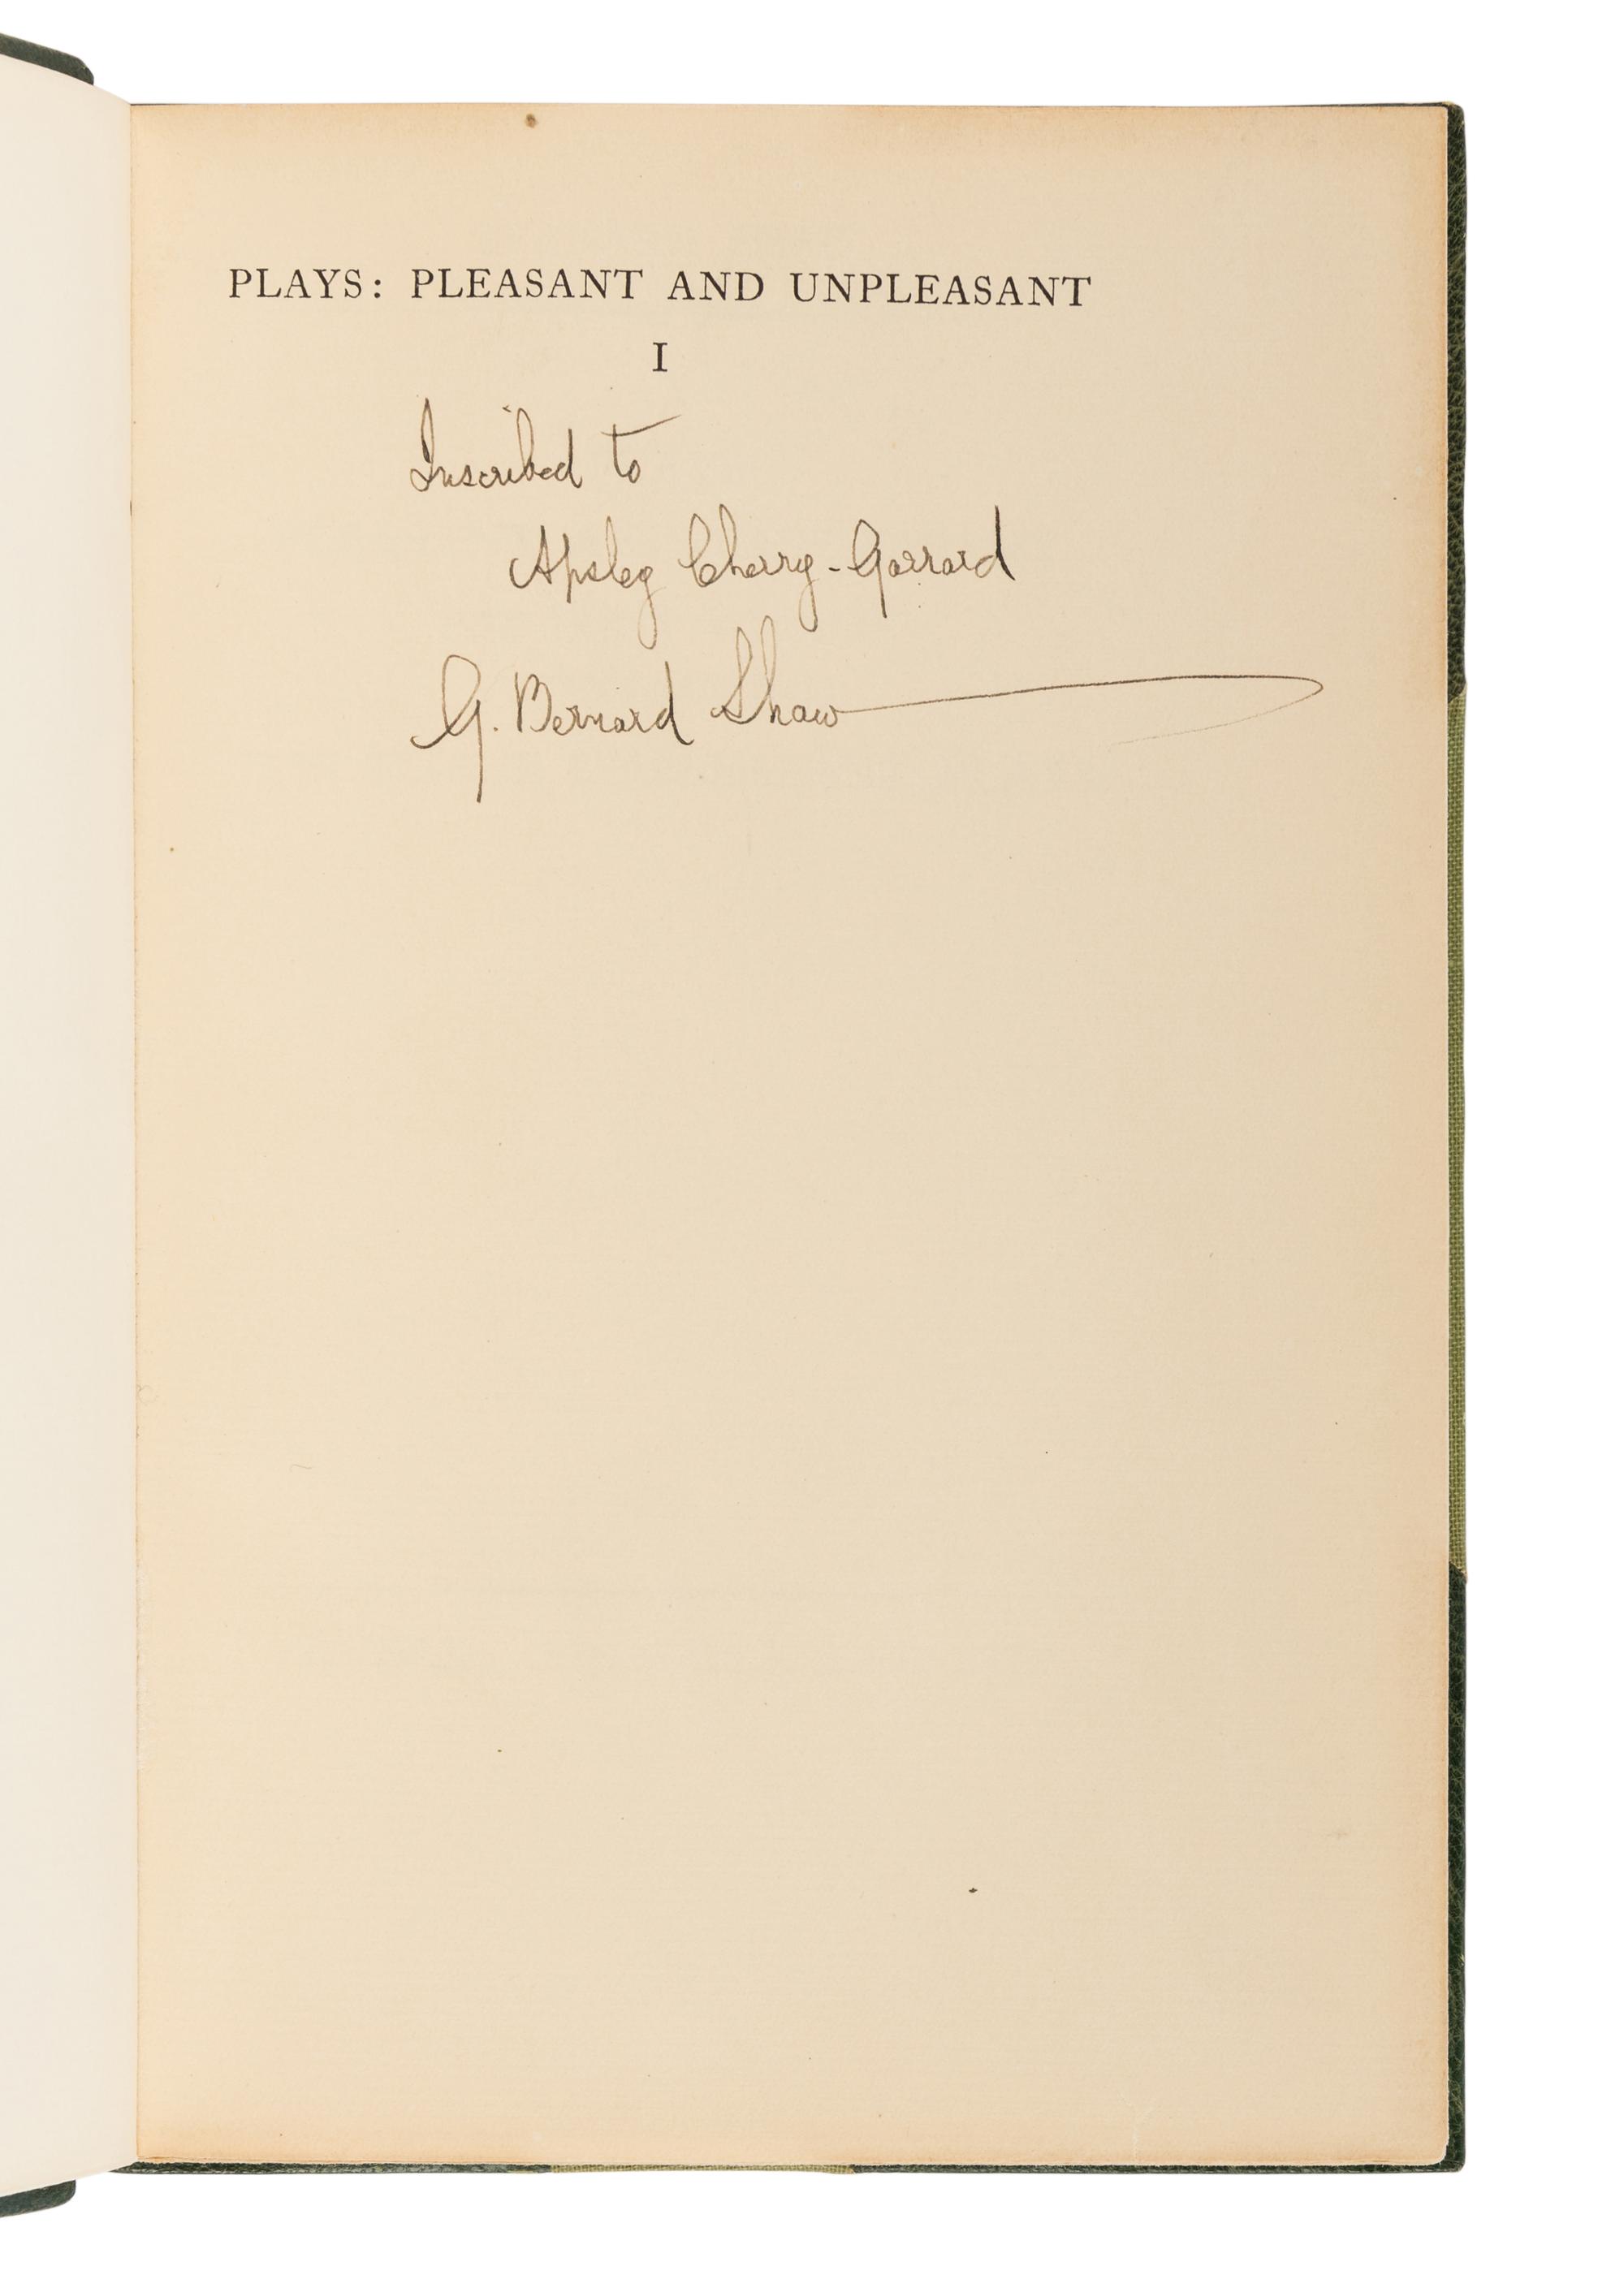 PLAYS: PLEASANT AND UNPLEASANT
I
Inscribed to
Apsley Cherry-Garrard
G. Bernard Shaw